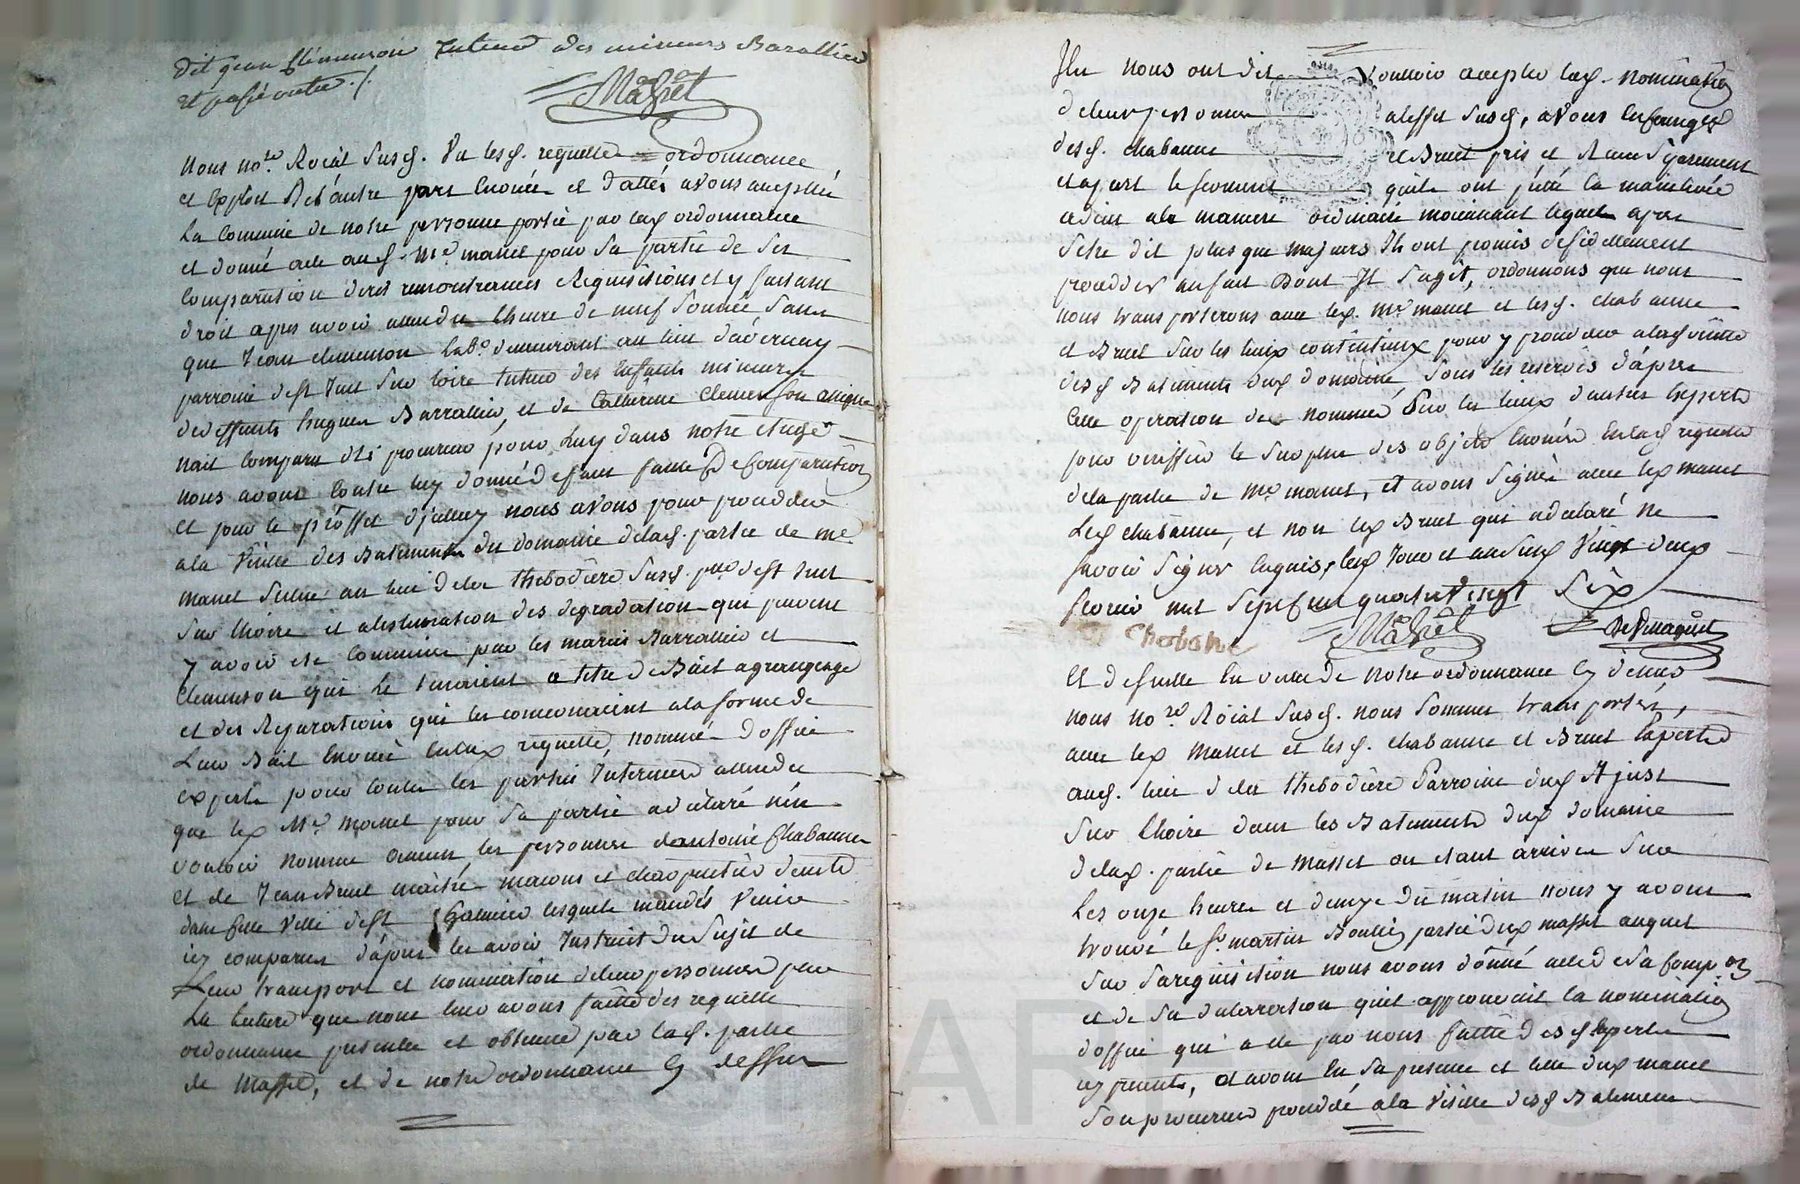 dit jean Clémenson Tuteur des mineurs Barallier
et passé outre ./.
Mahret
Nous no.re Roial susd. Vu lesd. requette ordonnance
et Exploit de l'autre part Enoncée et dattés avons accepté
La Commise de notre personne portée par lad. ordonnance
et donné acte aud. Me manet pour sa partie de ses
Comparution dires remontrances Requisitions et y faisant
droit apres avoir attendu L'heure de neuf sonnée sans
que Jean clemenson Labo. demeurant au lieu d'avernay
parroisse de St Just sur Loire tuteur des Enfants mineurs
des deffunts hugues Barrallier, et de Catherine Clemenson assigné
nait Comparu ni procureur pour Luy dans notre Etude
nous avons Contre luy donné deffaut faute de Comparution
et pour le proffit d'jceluy nous avons pour proceder
a la Visitte des Batiments du domaine delad. partie de me
manet Situé au lieu de la thibodiere susd. par. de St Just
sur Lhoire et a lestimation des degradations qui peuvent
y avoir été Commises par les mariés Barrallier et
Clemenson qui le tenoient a titre de Bail a grangeage
et des Reparations qui les concernoient a la forme de
Leur Bail Enoncé Enlad. requette, nommé d'office
experts pour toutes les parties Interessées attendu
que led. Me. manet pour sa partie a declaré nen
vouloir nommer aucun, les personnes dantoine Chabanne
et de Jean Bruel maitre macons et charpentier demt.
dans cette Ville de St Galmier lesquels mandés Venir
icy comparus d'apres les avoir Instruit du Sujet de
Leur transport et nomination de leur personnes par
La lecture que nous leur avons faitte des requette
ordonnance presentée et obtenue par lad. partie
de Masset, et de notre ordonnance cy dessus
Ils nous ont dit vouloir accepter lad. nomination
de leur personne a leffet susd., avons Enconsequence
desd. chabanne et Bruel pris et Recu séparement
et a part le serment quils ont prété la main levée
a dieu a la maniere ordinaire moiennant lequel apres
s'etre dit plus que majeurs Ils ont promis de fidellement
proceder au fait Dont Il sagit, ordonnons que nous
nous transporterons avec led. me. manet et lesd. chabanne
et Bruel sur les lieux contentieux pour y proceder alad. visitte
desd. Batiments dud. domaine, sous les reserves d'apres
cette operation de nommer sur les lieux d'autres Experts
pour veriffier le surplus des objets Enoncés Enlad. requette
de la partie de me. manet, Et avons signé avec led. manet
Led. chabanne, et non led. Bruel qui a declaré ne
savoir signer Enquis, led. Jour et an susd. Vingt deux
fevrier mil sept cent quatre Vingt six
Chabane Mahret
Et de suitte En vertu de notre ordonnance cy dessus
nous no.re Roial susd. nous sommes transportés,
avec led. manet et lesd. chabanne et Bruel Experts
aud. lieu de la thibodiere Parroisse dud. St just
sur Lhoire dans les Batiments dud. domaine
de lad. partie de masset ou etant arrivés sur
Les onze heures et demye du matin nous y avons
trouvé le Sr. martin partie dud. masset auquel
sur sa requisition nous avons donné acte de sa Comp.on
et de sa declaration quil approuvait la nomination
d'office qui a été par nous faitte desd. Experts
icy presents, et avons En sa presence et celle dud. manet
Son procureur procedé a la Visitte desd. Batiments